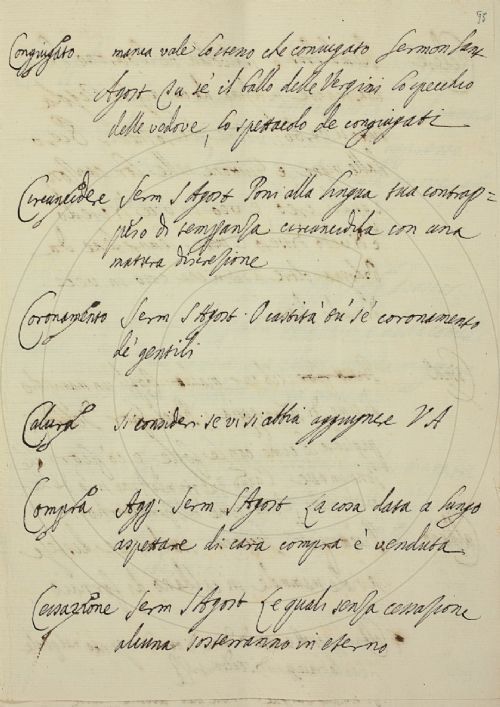 95
Congiugato manca vale lo steso che coniugato Sermon San
Agost Tu sè il ballo delle Vergini lo specchio
delle vedove, lo spettacolo de congiugati
Circuncidere Serm S Agost Poni alla lingua tua contrap=
peso di temperanza circuncidila con una
matura discrezione
Coronamento Serm S Agost. O castità tù sè coronamento
de gentili
Calura si consideri se vi si abbia aggiugnere V A
Compra Agg: Serm S Agost La cosa data a lungo
aspettare di cara compra è venduta
Cessazione Serm S Agost Le quali senza cessazione
alcuna sosterranno in eterno